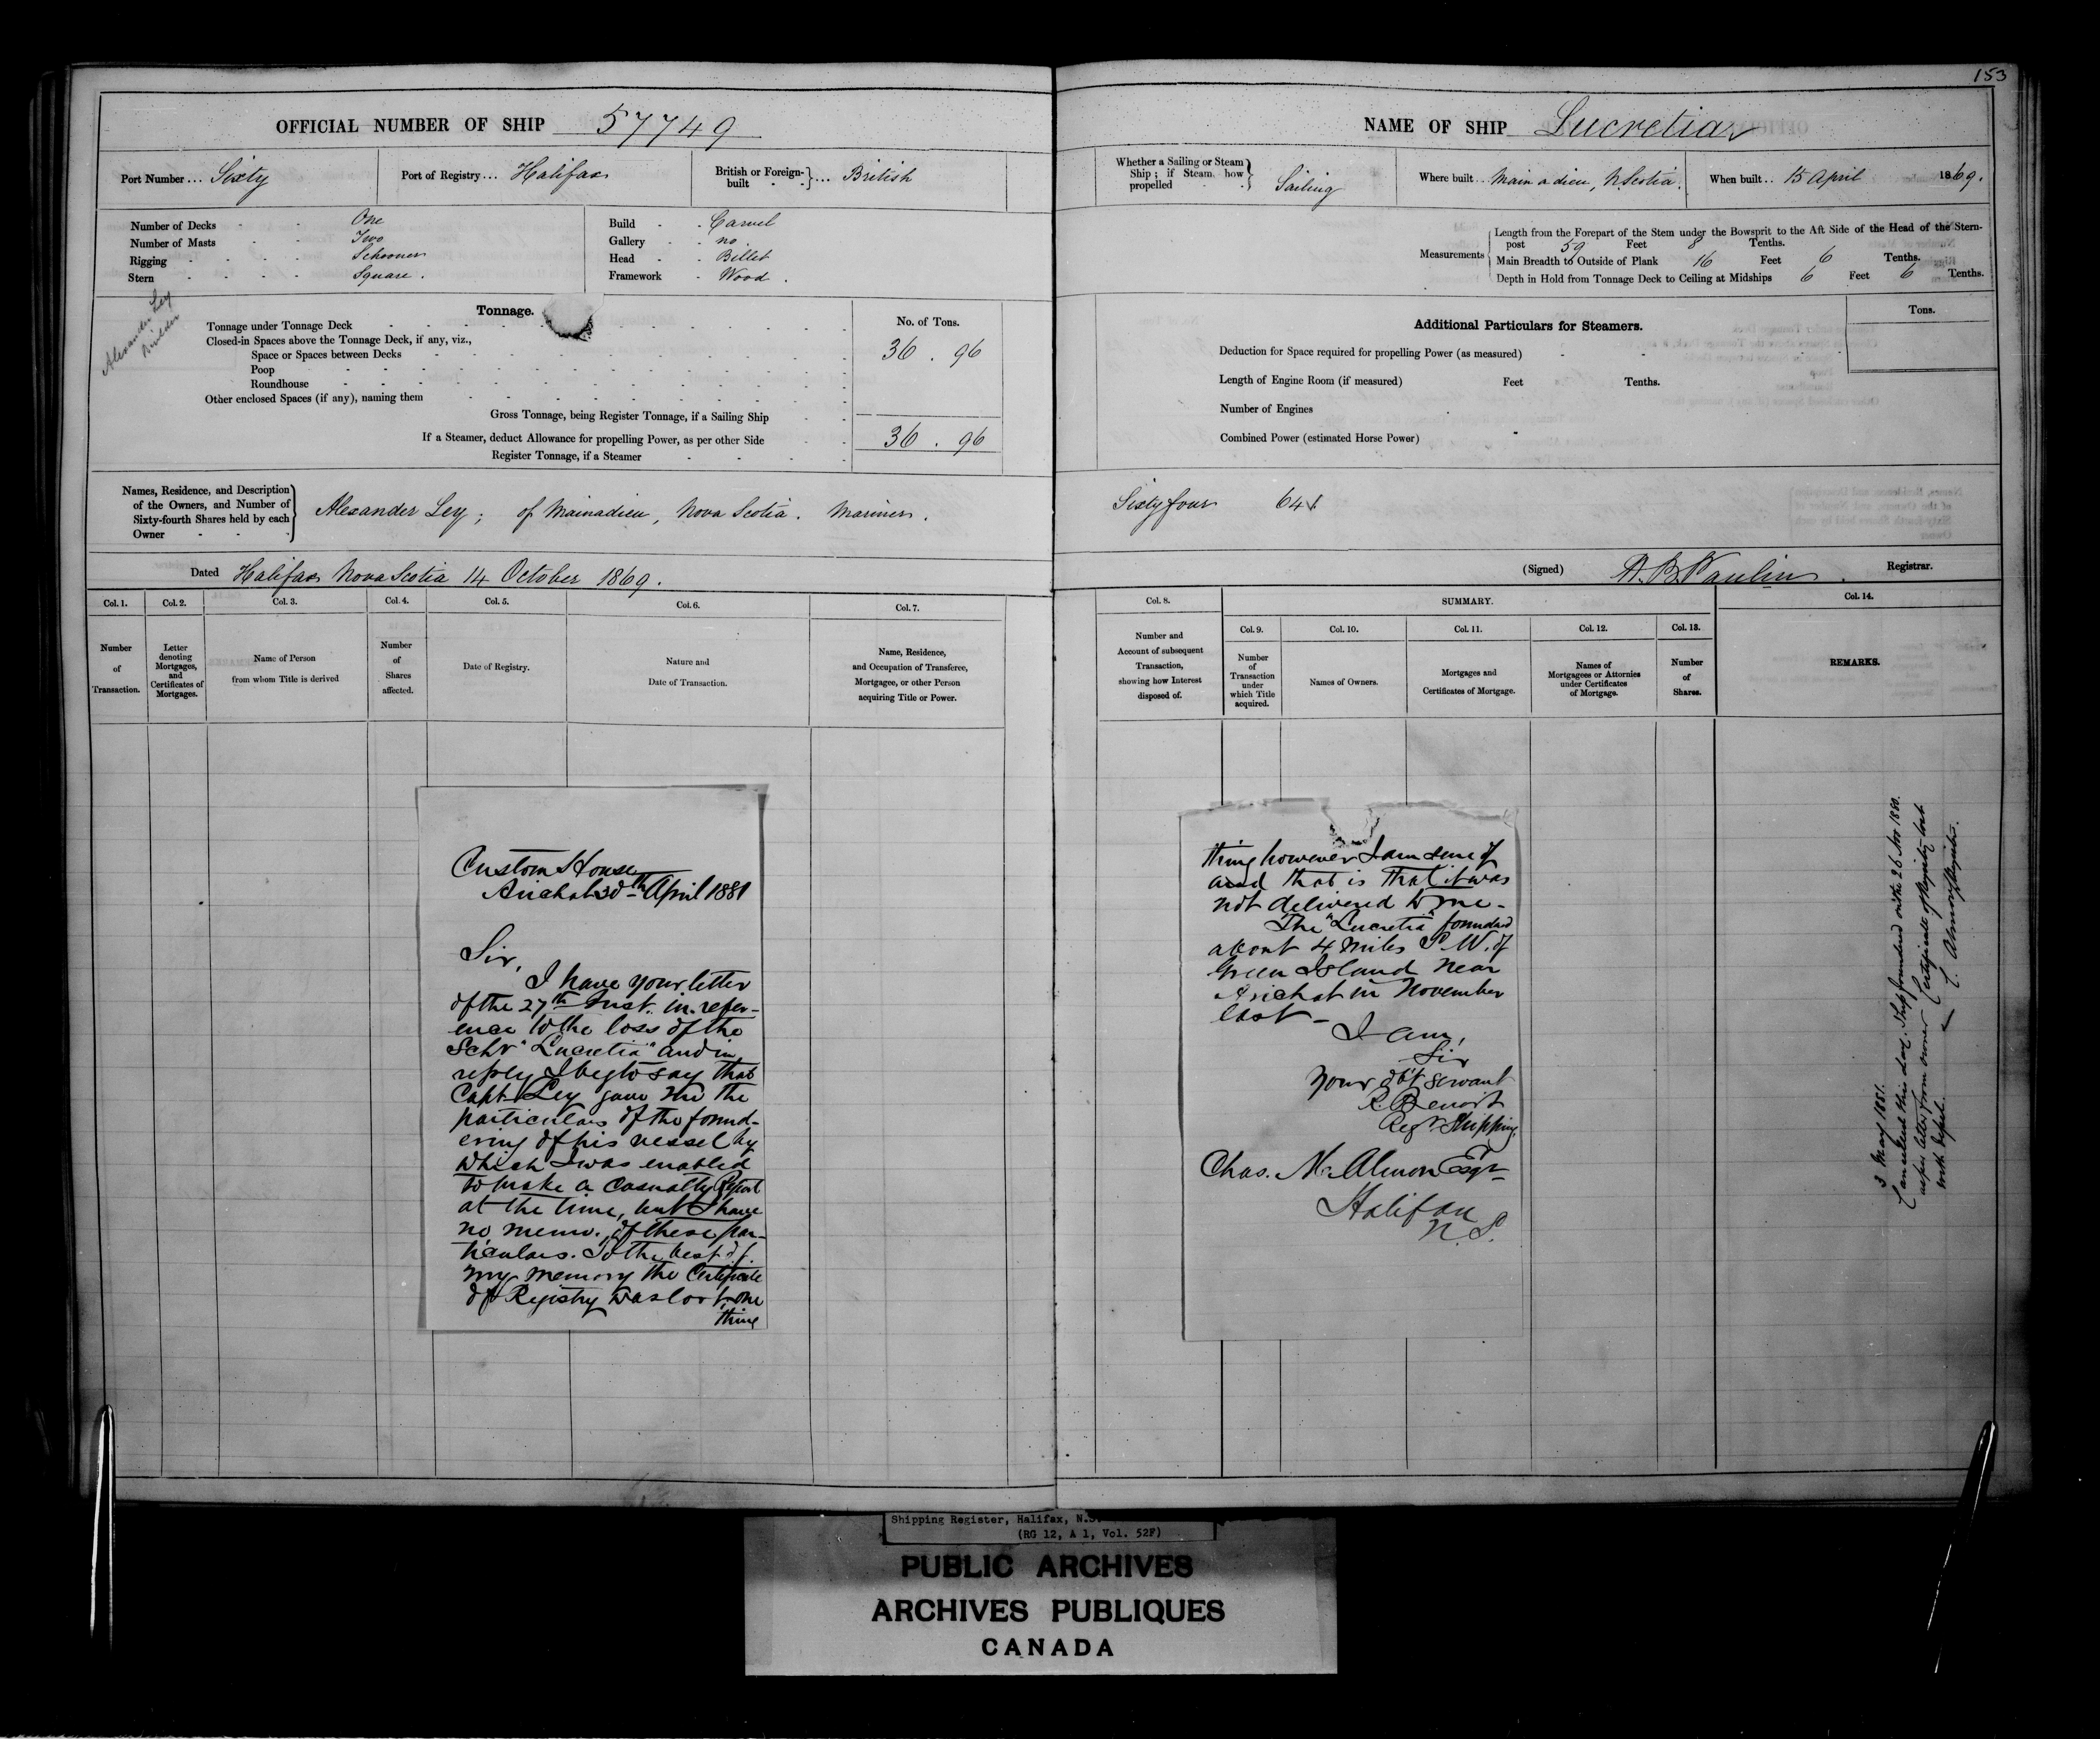 153
OFFICIAL NUMBER OF SHIP 57749
Port Number ... Sixty
Port of Registry ... Halifax
British or Foreign-built } ... British
Number of Decks - - One
Number of Masts - - Two
Rigging - - - - Schooner
Stern - - - - Square.
Build - - Carvel
Gallery - - no
Head - - Billet
Framework - Wood.
Alexander Ley
Builder
Tonnage.
No. of Tons.
Tonnage under Tonnage Deck
Closed-in Spaces above the Tonnage Deck, if any, viz.,
Space or Spaces between Decks 36 . 96
Poop
Roundhouse
Other enclosed Spaces (if any), naming them
Gross Tonnage, being Register Tonnage, if a Sailing Ship
If a Steamer, deduct Allowance for propelling Power, as per other Side 36 . 96
Register Tonnage, if a Steamer
Names, Residence, and Description
of the Owners, and Number of
Sixty-fourth Shares held by each
Owner
Alexander Ley; of Mainadieu, Nova Scotia. Mariner.
Dated Halifax Nova Scotia 14 October 1869.
Col. 1. Col. 2. Col. 3. Col. 4. Col. 5. Col. 6. Col. 7.
Number
of
Transaction.
Letter
denoting
Mortgages,
and
Certificates of
Mortgages.
Name of Person
from whom Title is derived
Number
of
Shares
affected.
Date of Registry.
Nature and
Date of Transaction.
Name, Residence,
and Occupation of Transferee,
Mortgagee, or other Person
acquiring Title or Power.
Custom House
Arichat 30th April 1881
Sir,
I have your letter
of the 27th Inst. in refer-
ence to the loss of the
Schr "Lucretia" and in
reply I beg to say that
Capt Ley gave me the
particulars of the found-
ering of his vessel by
which I was enabled
to make a Casualty Report
at the time, but I have
no memo. of these par-
ticulars. To the best of
my memory the Certificate
of Registry was lost, one
thing
NAME OF SHIP Lucretia
Whether a Sailing or Steam
Ship; if Steam, how
propelled
Sailing
Where built ... Main a dieu, N. Scotia.
When built .. 15 April 1869.
Measurements
Length from the Forepart of the Stem under the Bowsprit to the Aft Side of the Head of the Stern-
post 59 Feet 8 Tenths.
Main Breadth to Outside of Plank 16 Feet 6 Tenths.
Depth in Hold from Tonnage Deck to Ceiling at Midships 6 Feet 6 Tenths.
Additional Particulars for Steamers.
Tons.
Deduction for Space required for propelling Power (as measured)
Length of Engine Room (if measured) Feet Tenths.
Number of Engines
Combined Power (estimated Horse Power)
Sixty four 64
(Signed) Registrar.
Col. 8. SUMMARY. Col. 14.
Col. 9. Col. 10. Col. 11. Col. 12. Col. 13.
Number and
Account of subsequent
Transaction,
showing how Interest
disposed of.
Number
of
Transaction
under
which Title
acquired.
Names of Owners.
Mortgages and
Certificates of Mortgage.
Names of
Mortgagees or Attornies
under Certificates
of Mortgage.
Number
of
Shares.
REMARKS.
thing however I am sure of
and that is that it was
not delivered to me-
The "Lucretia" foundered
about 4 miles S. W. of
Green Island near
Arichat in November
last-
I am,
Sir
your obt servant
R. Benoit
Regr Shipping
Chas. M. Almon Esqr
Halifax
N.S.
3 May 1881.
Cancelled this day. Ship foundered on the 26 Nov 1880.
as per letter from owner Certificate of Registry lost
with
C. Almon Registrar.
Shipping Register, Halifax, N.S.
(RG 12, A 1, Vol. 52F)
PUBLIC ARCHIVES
ARCHIVES PUBLIQUES
CANADA